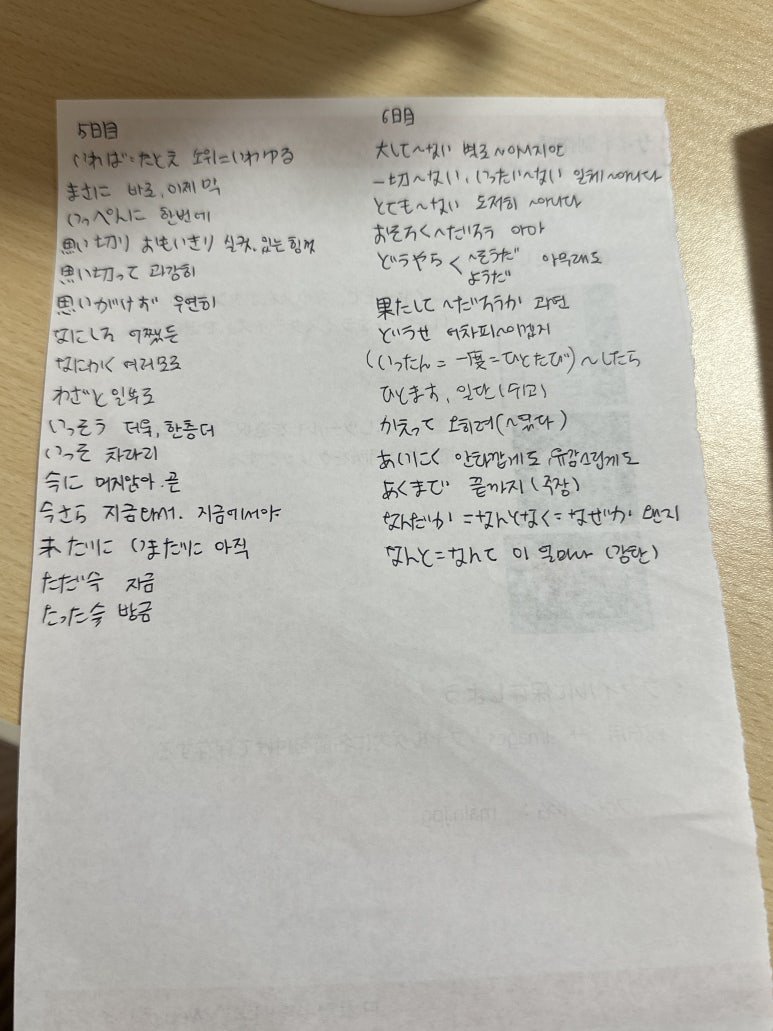 5日目
いわば=たとえ 소위=いわゆる
まさに 바로, 이제 막
いっぺんに 한번에
思い切り おもいきり 실컷, 있는 힘껏
思い切って 과감히
思いがけず 우연히
なにしろ 어쨌든
なにかく 여러모로
わざと 일부로
いっそう 더욱, 한층더
いっそ 차라리
今に 머지않아. 곧
今さら 지금와서. 지금에서야
未だに いまだに 아직
ただ今 지금
たった今 방금
6日目
大して~ない 별로 ~아니지만
一切~ない, いったい~ない 일체~아니다
とても~ない 도저히 ~아니다
おそらく~だろう 아마
どうやら< ~そうだ ようだ 아무래도
果たして ~だろうか 과연
どうせ 어차피~이겠지
(いったん = 一度=ひとたび) ~したら
ひとまず, 일단 (쉬고)
かえって 오히려(~였다)
あいにく 안타깝게도, 유감스럽게도
あくまで 끝까지 (주장)
なんだか =なんとなく=なぜか 왠지
なんと=なんて 이 얼마나 (감탄)